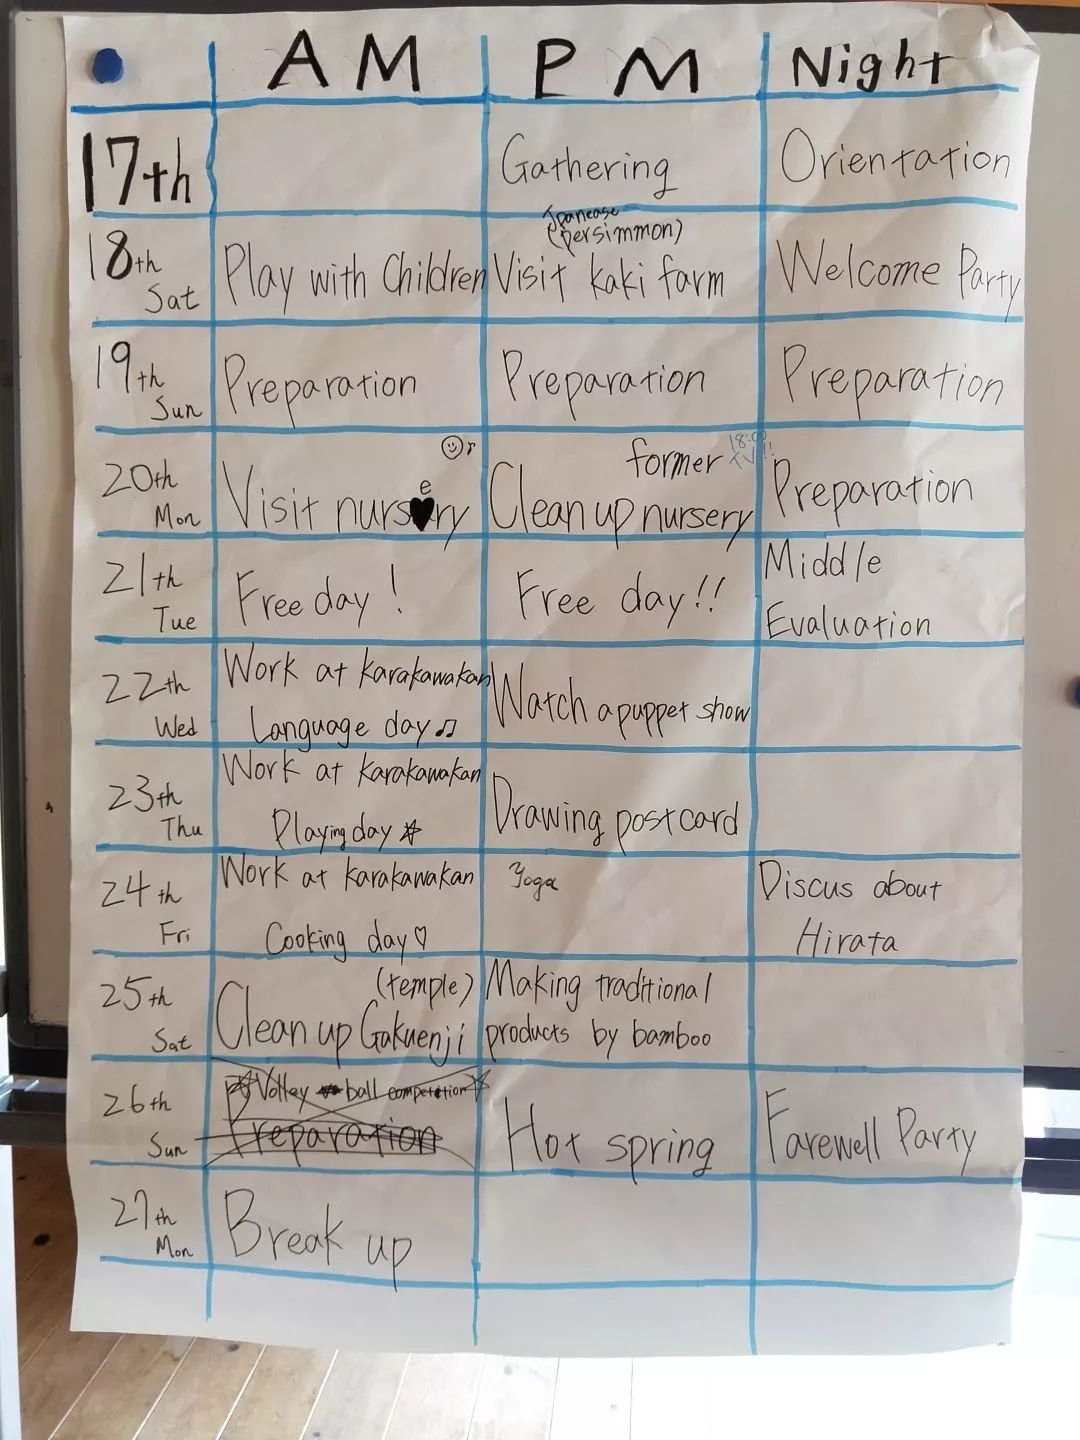 AM PM Night
17th Gathering Orientation
18th Sat Play with Children Visit kaki farm Welcome Party
Jpanease
(persimmon)
19th Sun Preparation Preparation Preparation
20th Mon Visit nursery Clean up nursery Preparation
e
former
18:00
TV!!
21th Tue Free day! Free day!! Middle
Evaluation
22th Wed Work at karakawakan Watch a puppet show
Language day♫
23th Thu Work at karakawakan Drawing postcard
Playing day☆
24th Fri Work at karakawakan Yoga Discus about
Cooking day♡ Hirata
25th Sat (temple) Making traditional
Clean up Gakuenji products by bamboo
26th Sun Volley ball competetion
Preparation Hot spring Farewell Party
27th Mon Break up